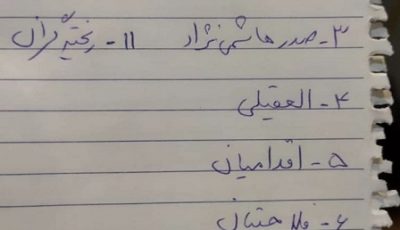 ۳- صدر هاشمی نژاد ۱۱- ریخته گران
۴- العقیلی
۵- اقدامیان
۶- فلاحتیان